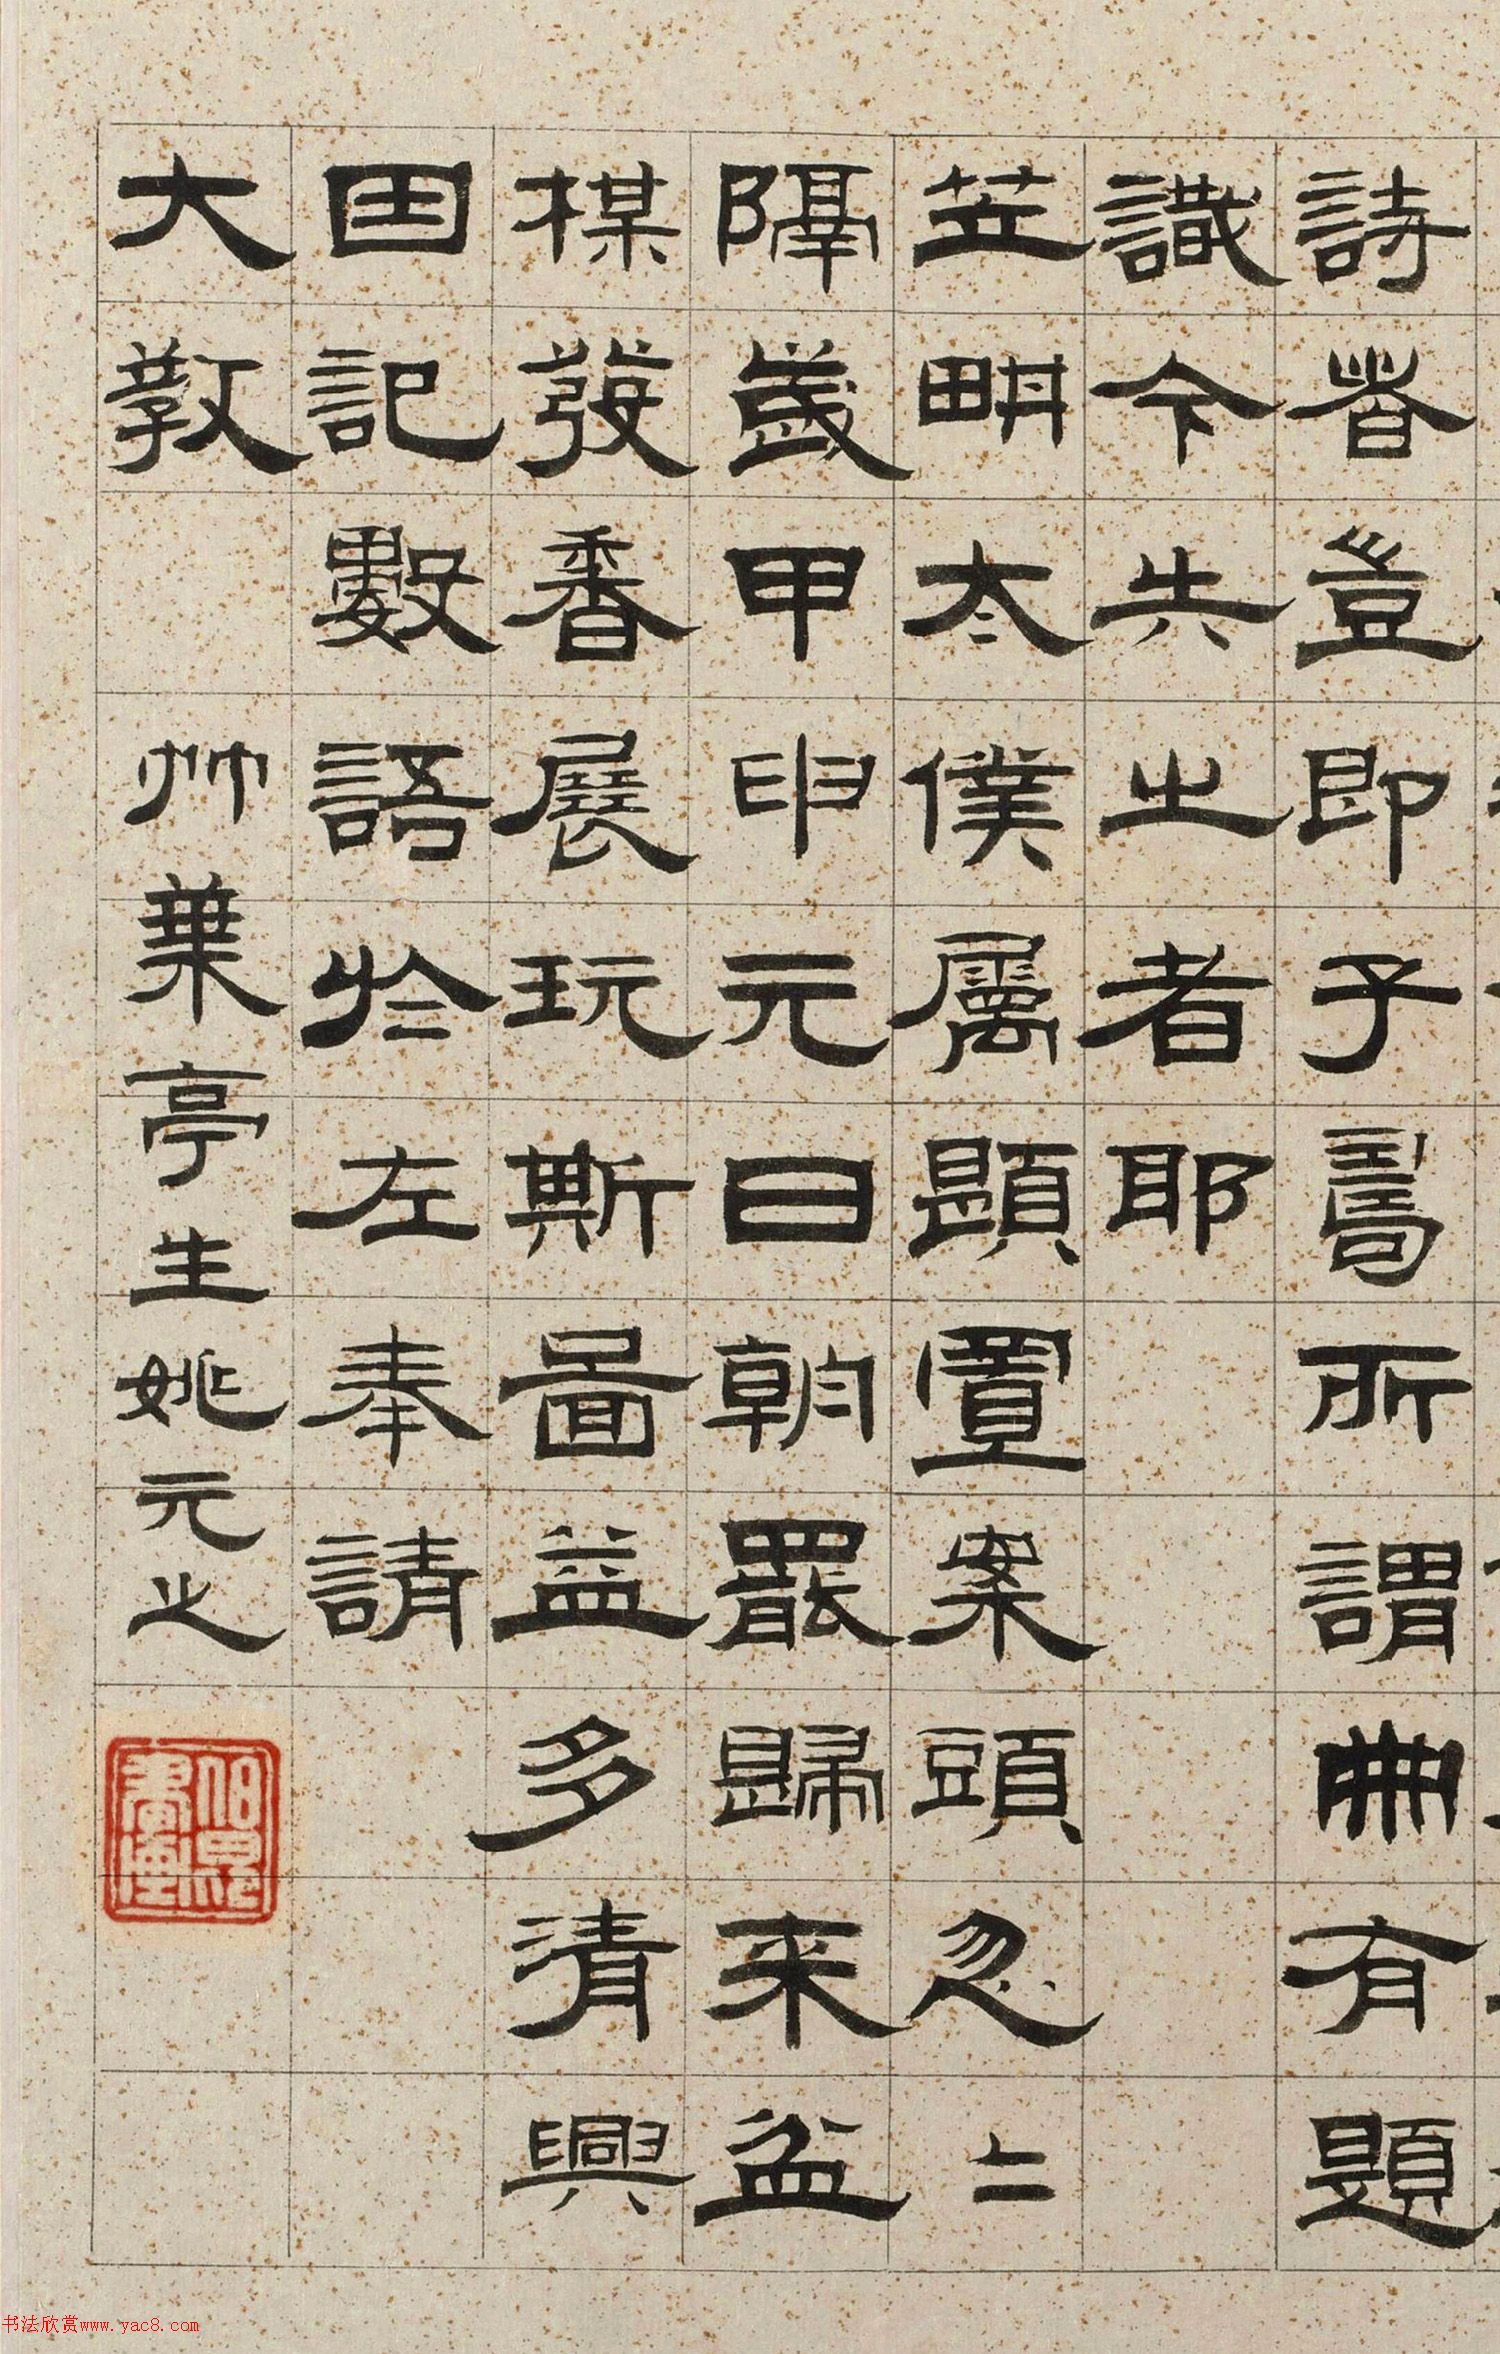 詩豈即子壽所謂冊有題
識今失之者耶
笠畊太僕屬題置案頭忽二
隔歲甲申元日朝罷歸来盆
楳發香展玩斯圖益多清興
因記數語於左奉請
大教 竹葉亭生姚元之
书法欣赏www.yac8.com